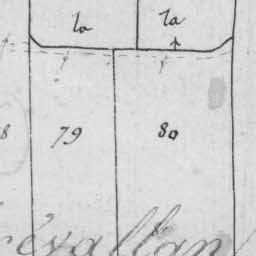 la la
8 79 80
évallan